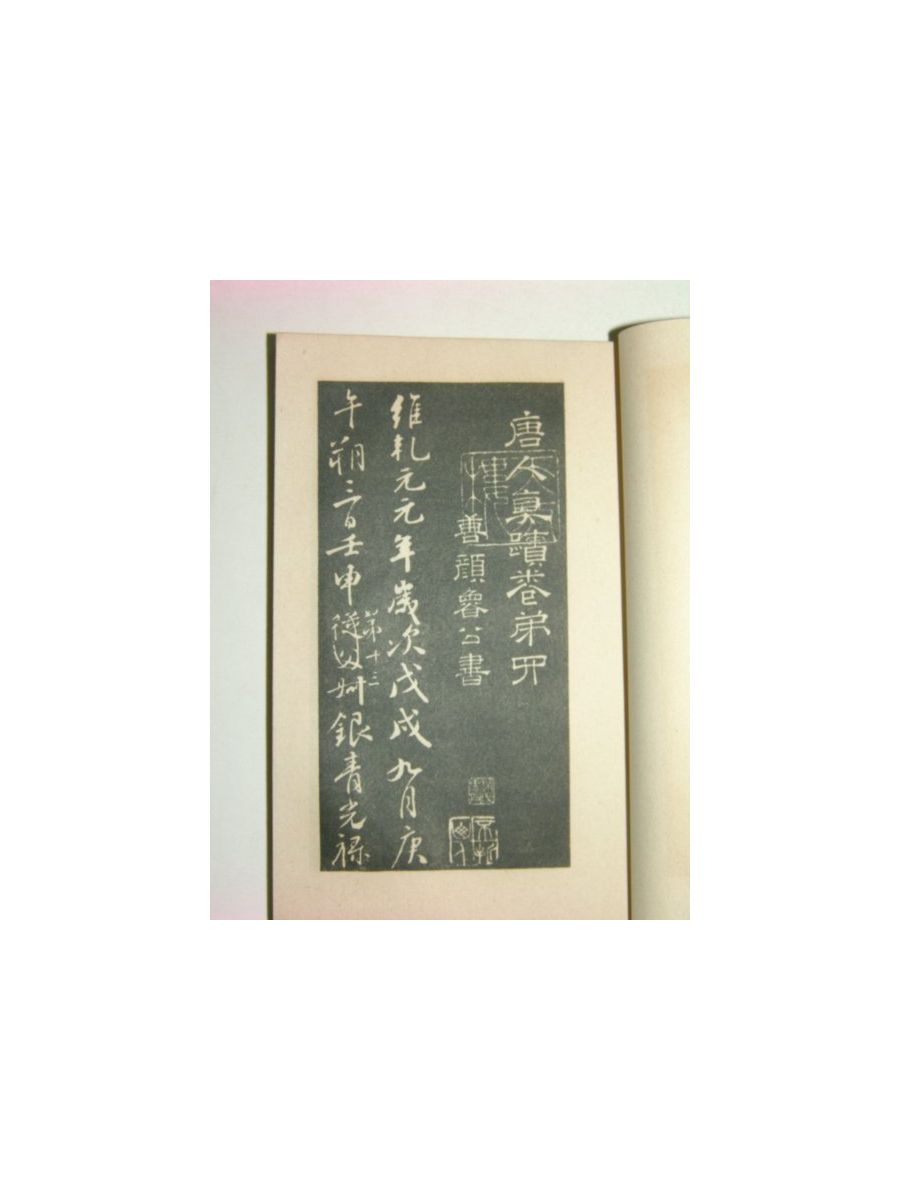 唐人真蹟卷弟四
善顏魯公書
維乹元元年歲次戊戌九月庚
午朔三日壬申第十三從父姪銀青光祿